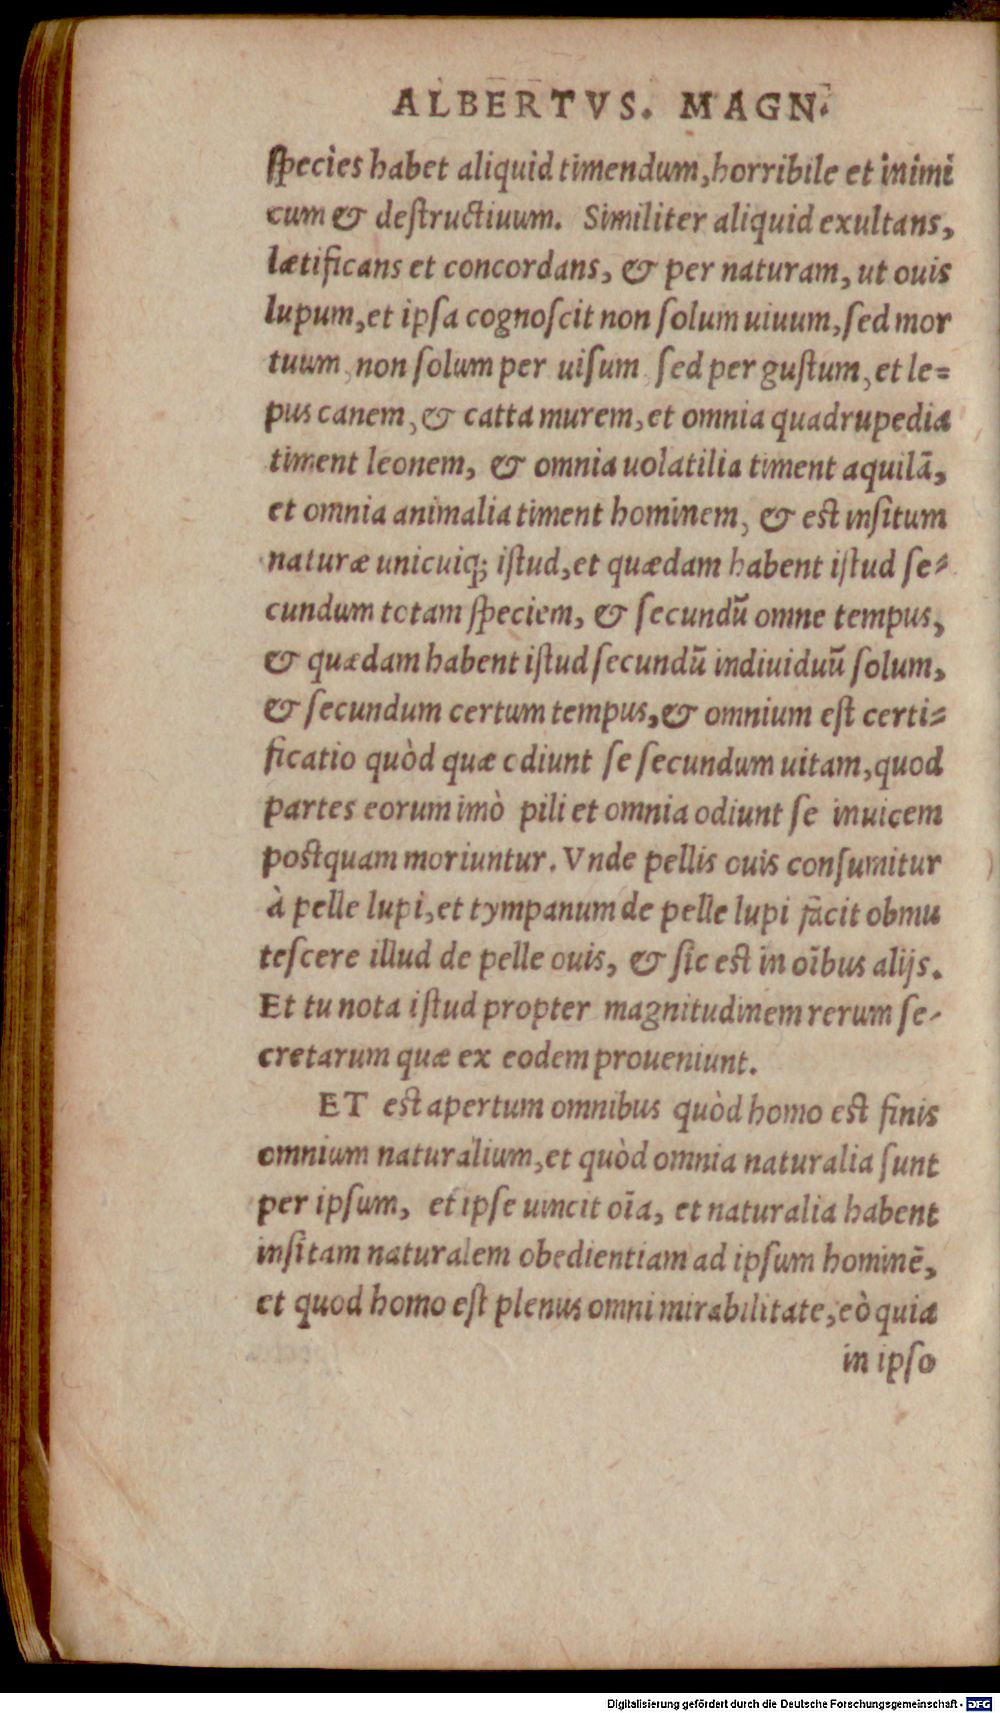 ALBERTVS. MAGN.
ſpecies habet aliquid timendum, horribile et inimi
cum & deſtructiuum. Similiter aliquid exultans,
lætificans et concordans, & per naturam, ut ouis
lupum, et ipſa cognoſcit non ſolum uiuum, ſed mor
tuum, non ſolum per uiſum, ſed per guſtum, et le=
pus canem, & catta murem, et omnia quadrupedia
timent leonem, & omnia uolatilia timent aquilā,
et omnia animalia timent hominem, & eſt inſitum
naturæ unicuiq; iſtud, et quædam habent iſtud ſe=
cundum totam ſpeciem, & ſecundū omne tempus,
& quædam habent iſtud ſecundū indiuiduū ſolum,
& ſecundum certum tempus, & omnium eſt certi=
ficatio quòd quæ odiunt ſe ſecundum uitam, quod
partes eorum imò pili et omnia odiunt ſe inuicem
poſtquam moriuntur. Vnde pellis ouis conſumitur
à pelle lupi, et tympanum de pelle lupi facit obmu
teſcere illud de pelle ouis, & ſic eſt in oībus alijs.
Et tu nota iſtud propter magnitudinem rerum ſe=
cretarum quæ ex eodem proueniunt.
ET eſt apertum omnibus quòd homo eſt finis
omnium naturalium, et quòd omnia naturalia ſunt
per ipſum, et ipſe uincit oīa, et naturalia habent
inſitam naturalem obedientiam ad ipſum hominē,
et quod homo eſt plenus omni mirabilitate, eò quia
in ipſo
Digitalisierung gefördert durch die Deutsche Forschungsgemeinschaft - DFG